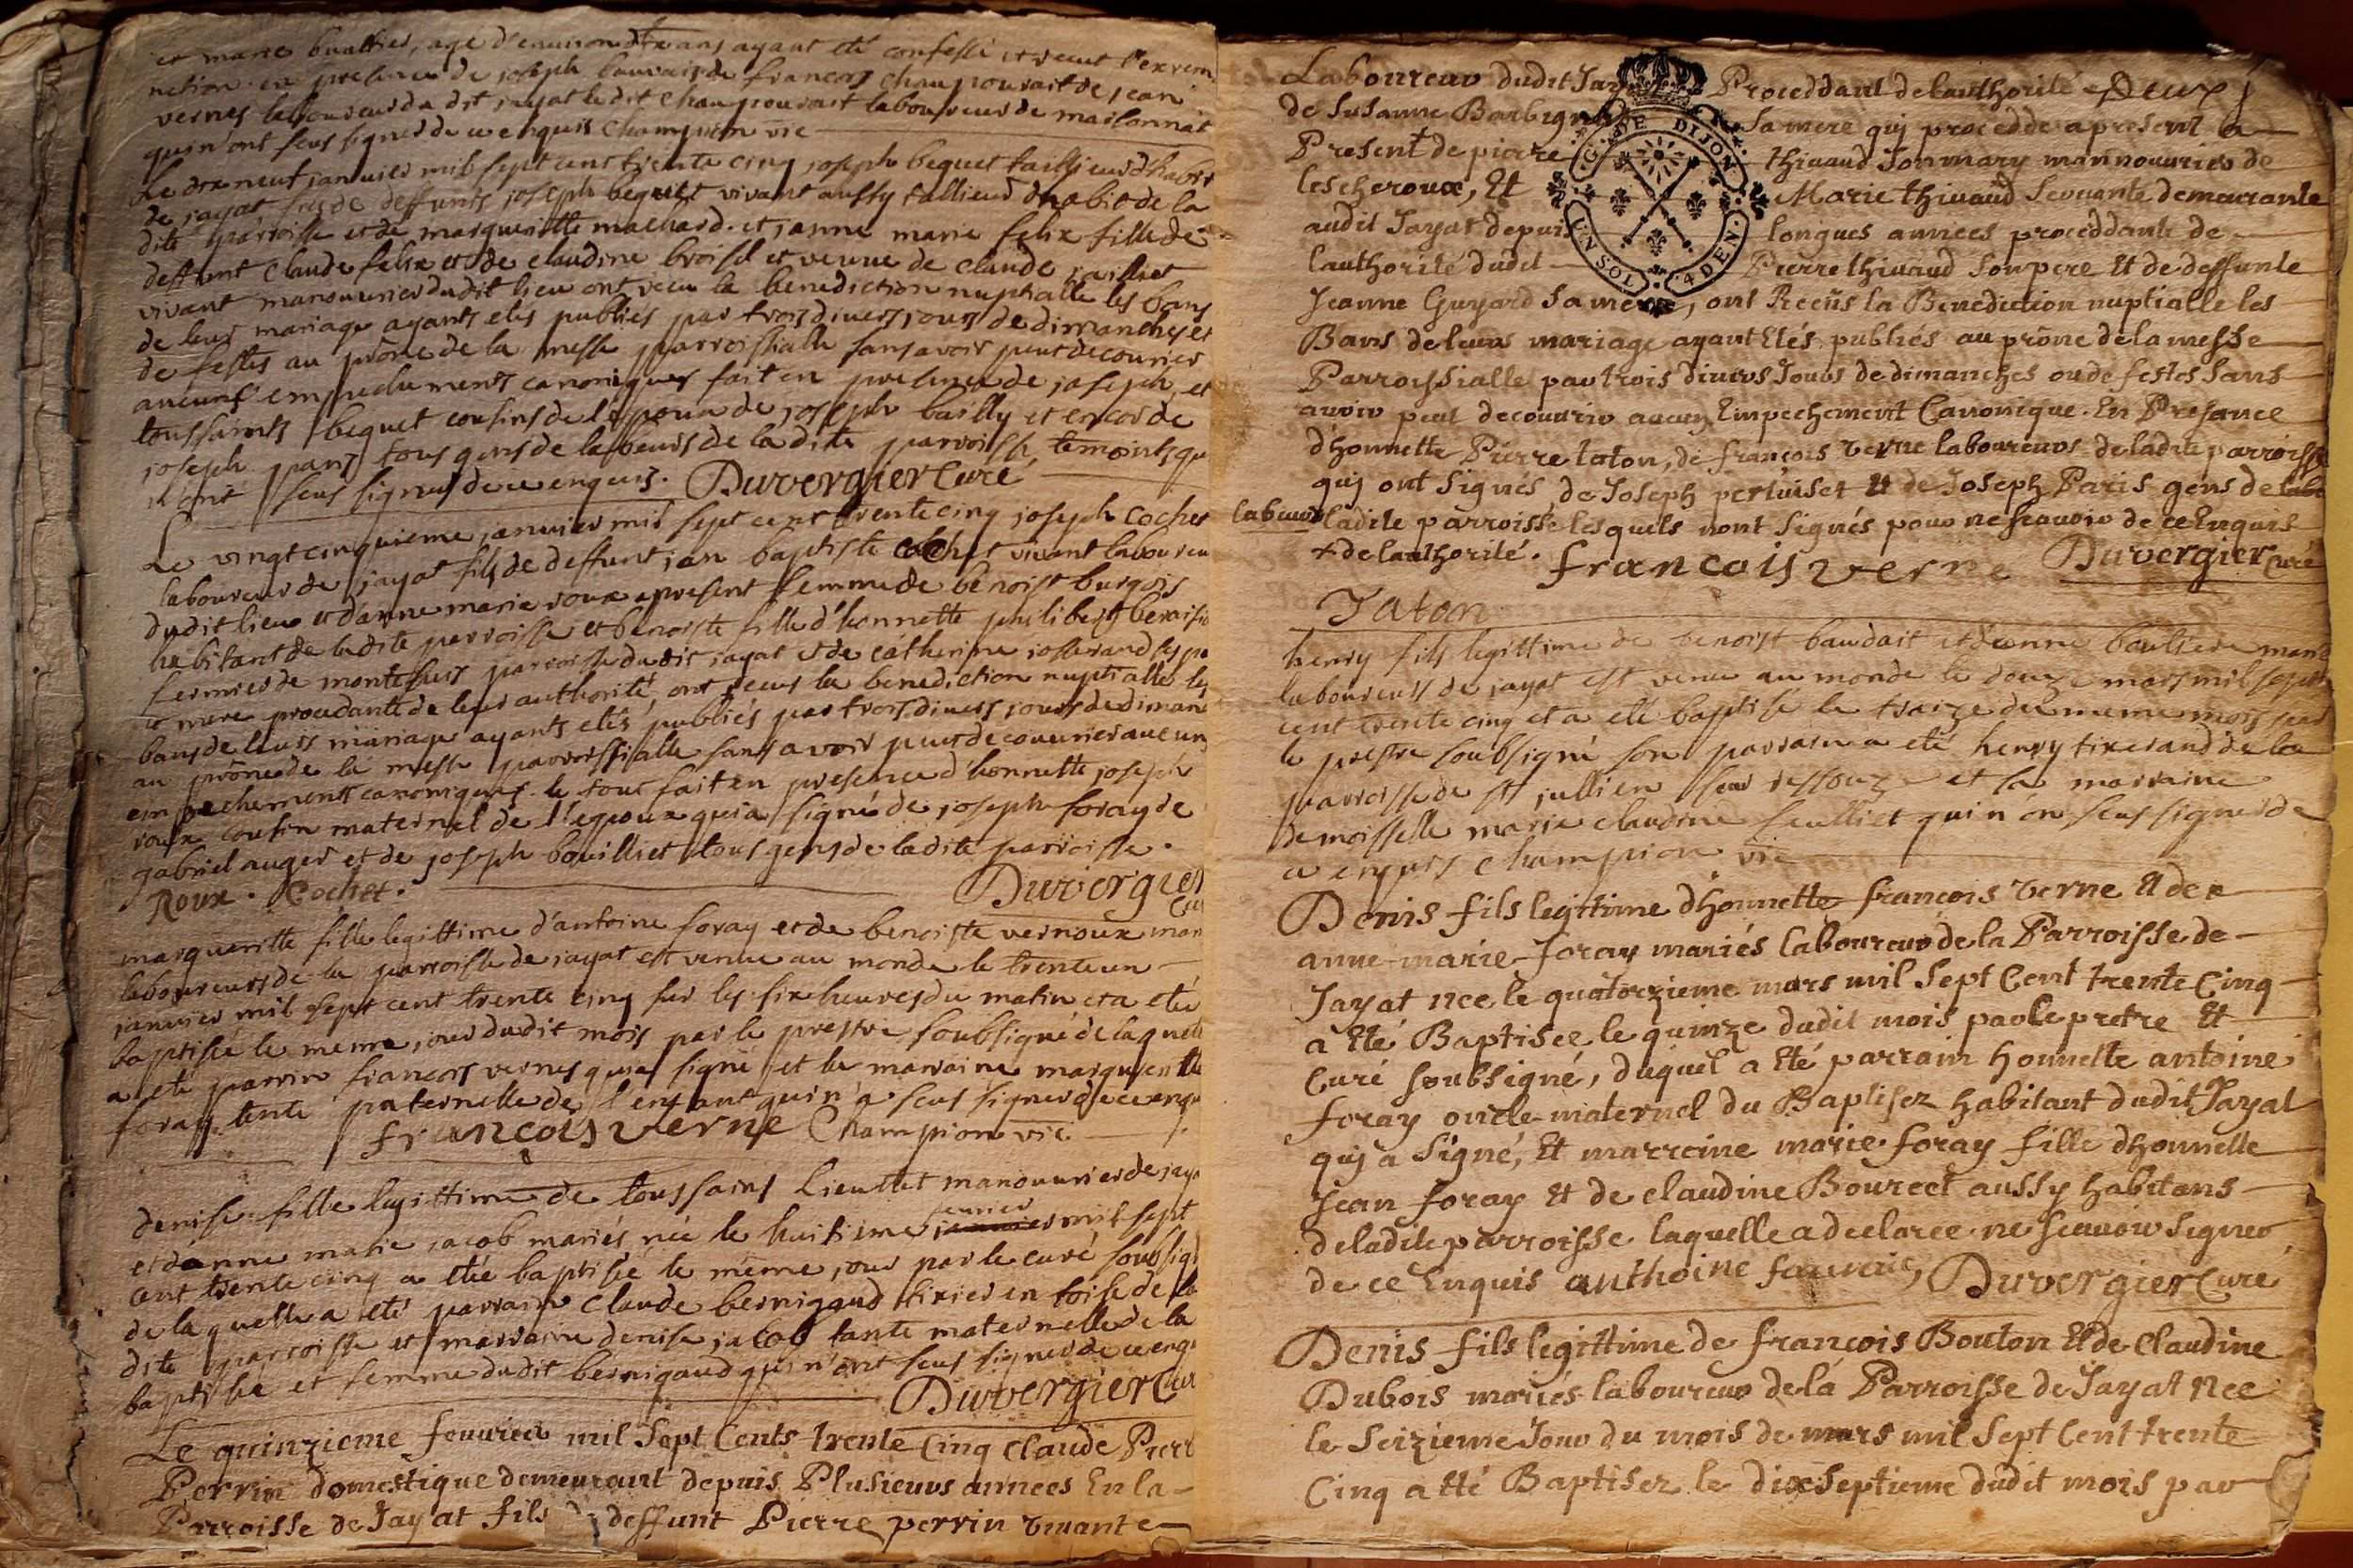 et marie buathier, agé d'environ ans ayant eté confessé et receut l'extrem
nction en presence de joseph beauvais de francois chanpouvait de jean
vernes laboureurs du dit jayat ledit chanpouvait laboureur de marsonnat
qui n'ont seus signer de ce enquis Champion vic
Le dix neuf janvier mil sept cent trente cinq joseph bequet tallieur d'habit
de jayat fils de deffunts joseph bequet vivant aussy tallieur d'habit de la
dite parroisse et de margueritte machard. et janne marie felix fille de
deffunt claude felix et de claudine broisil et veuve de claude jaillet
vivant manouvrier dudit lieu ont receu la benediction nuptialle les bans
de leur mariage ayants etés publiés par trois divers jours de dimanches et
de festes au prône de la messe parroissialle sans avoir peut decouvrier
aucuns empechements canoniques fait en presence de joseph et
toussaints bequet cousins de l'epoux de joseph bailly et encor de
joseph paris tous gens de labeurs de la dite parroisse temoints qui
n'ont seus signer de ce enquis. Duvergier Curé
Le vingt cinquieme janvier mil sept cent trente cinq joseph cochet
laboureur de jayat fils de deffunt jan baptiste cochet vivant laboureu
dudit lieu et d'anne marie roux apresent femme de benoist burgois
habitant de ladite parroisse et benoiste fille d'honnette philibert beraisi
fermier de montesuis parroisse dudit jayat et de catherine josserand ses pe
et mere procedante de leur authorité, ont receus la benediction nuptialle les
bans de leurs mariage ayants etés publiés par trois divers jours de diman
au prône de la messe parroissialle sans avoir peus decouvrier aucun
empechements canoniques. le tout fait en presence d'honnette joseph
roux cousin maternel de l'epoux qui a signé de joseph foray de
gabriel auger et de joseph bouilliet tous gens de ladite parroisse.
Roux. Cochet. Duvergier
Cur
margueritte fille legittime d'antoine foray et de benoiste vernoux mari
laboureurs de la parroisse de jayat est venue au monde le trente un
janvier mil sept cent trente cinq sur les six heures du matin et a eté
baptisée le meme jour dudit mois par le prestre soubsigné de laquelle
a eté parrin francois vernes qui a signé et la marraine margueritte
foray tente paternelle de l'enfant qui n'a seus signer de ce enqu
francois verne Champion vic
denise fille legittime de toussaint Lieuttet manouvrier de jaya
et d'anne marie jacob mariés née le huitieme fevrier mil sept
cent trente cinq a etée baptisée le même jour par le curé soubsign
de laquelle a eté parrain claude bernigaud tixier en toise de la
dite parroisse et marraine denise jacob tante maternelle de la
baptisée et femme dudit bernigaud qui n'ont seus signer de ce enqu
Duvergier Cur
Le quinzieme fevrier mil Sept Cents trente Cinq Claude Pierr
Perrin domestique demeurant depuis Plusieurs années En la
Parroisse de Jayat fils de deffunt Pierre perrin vivant
Laboureur dudit Jay Proceddant de lauthorité Deux
de Susanne Barbign Sa mere qui procedde apresent a
Present de pierre thivaud Son mary mannouvrier de
lescheroux, Et Marie thivaud Servante demeurante
audit Jayat depuis longues années proceddante de
lauthorité dudit Pierre thivaud Son pere Et de deffunte
Jeanne Guyard Sa mere, ont Receüs la Benediction nuptialle les
Bans de leurs mariage ayant Etés publiés au prône de la messe
Parroissialle par trois divers Jours de dimanches ou de festes Sans
avoir peut decouvrir aucun Empechement Canonique. En Presance
d'honnette Pierre taton, de françois verne laboureurs de ladite parroisse
qui ont Signés, de Joseph pertuiset Et de Joseph Paris gens de labe
labeur ladite parroisse lesquels nont Signés pour ne scavoir de ce Enquis
+ de lauthorité. francois verne Duvergier Curé
Taton
henry fils legittime de benoist baudait et d'anne boutiere mari
laboureurs de jayat est venu au monde le douze mars mil sept
cent trente cinq et a eté baptisé le traize du meme mois par
le prestre soubsigné son parrain a eté henry tixerand de la
parroisse de st jullien sur ressouze et la marraine
demoisselle marie claudine feulliet qui n'on seus signer de
ce enquis Champion vic
Denis fils legitime d'honnette françois verne Et de
anne marie foray mariés laboureur de la Parroisse de
Jayat née le quatorzieme mars mil Sept Cent trente Cinq
a Eté Baptisée le quinze dudit mois par le pretre Et
Curé soubsigné, duquel a Eté parrain honnette antoine
foray oncle maternel du Baptisez habitant dudit Jayat
qui a Signé, Et marreine marie foray fille d'honnette
Jean foray Et de claudine Bourcet aussy habitans
de ladite parroisse laquelle a declarée ne scavoir Signer
de ce Enquis anthoine fauraie, Duvergier Cure
Denis fils legittime de françois Bouton Et de Claudine
Dubois mariés laboureur de la Parroisse de Jayat née
le Seizieme Jour du mois de mars mil Sept Cent trente
Cinq a Eté Baptisez le dix Septieme dudit mois par
G. DE DIJON
UN SOL. 4 DEN.